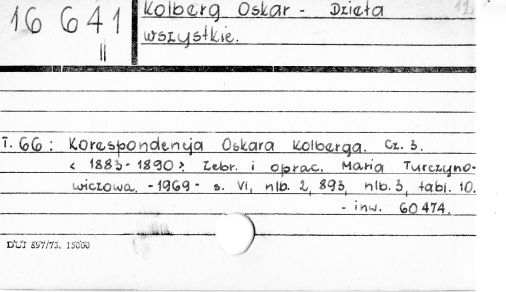 16 641
II
Kolberg Oskar - Dzieła 12.
wszystkie.
T. 66: Korespondencja Oskara Kolberga. Cz. 3.
< 1883-1890>. Zebr. i oprac. Maria Turczyno-
wiczowa. -1969- s. VI, nlb. 2, 893, nlb. 3, tabl. 10.
- inw. 60474.
DUJ 897/73. 15000